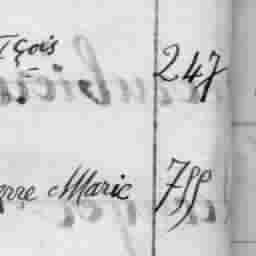 çois 247
rre Marie 799